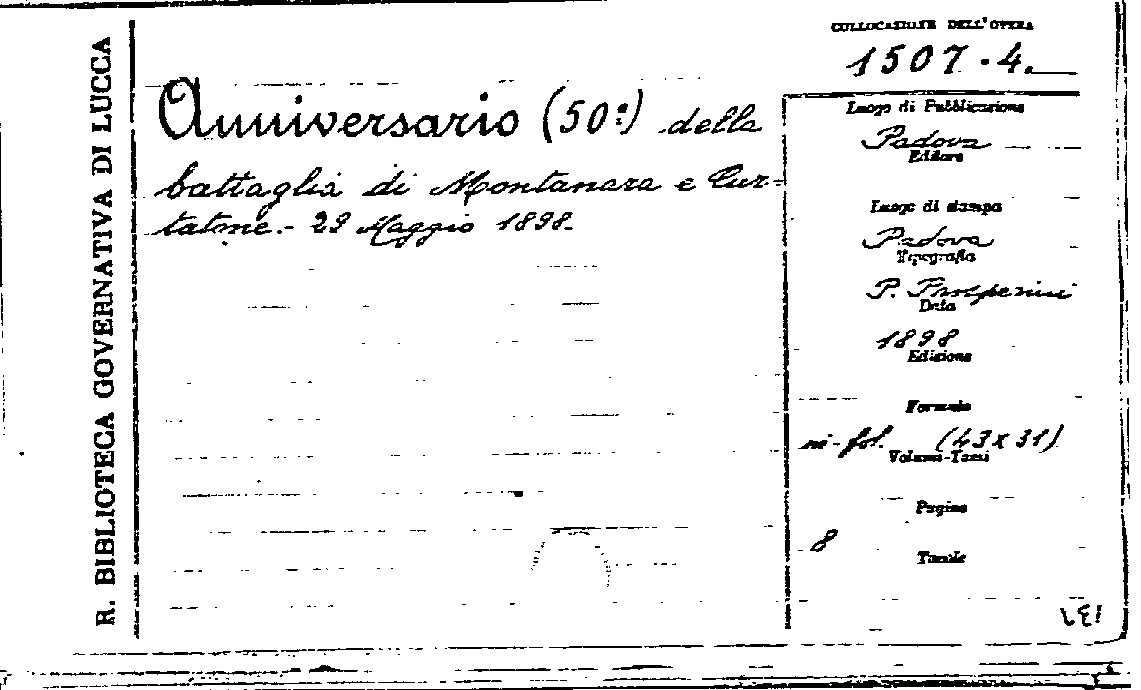 R. BIBLIOTECA GOVERNATIVA DI LUCCA
COLLOCAZIONE DELL'OPERA
1507.4.
Anniversario (50º) della
battaglia di Montanara e Cur-
tatone. - 29 Maggio 1898.
Luogo di Pubblicazione
Padova
Editore
Luogo di stampa
Padova
Tipografia
P. Prosperini
Data
1898
Edizione
Formato
in-fol. (43 x 31)
Volumi-Tomi
Pagine
8
Tavole